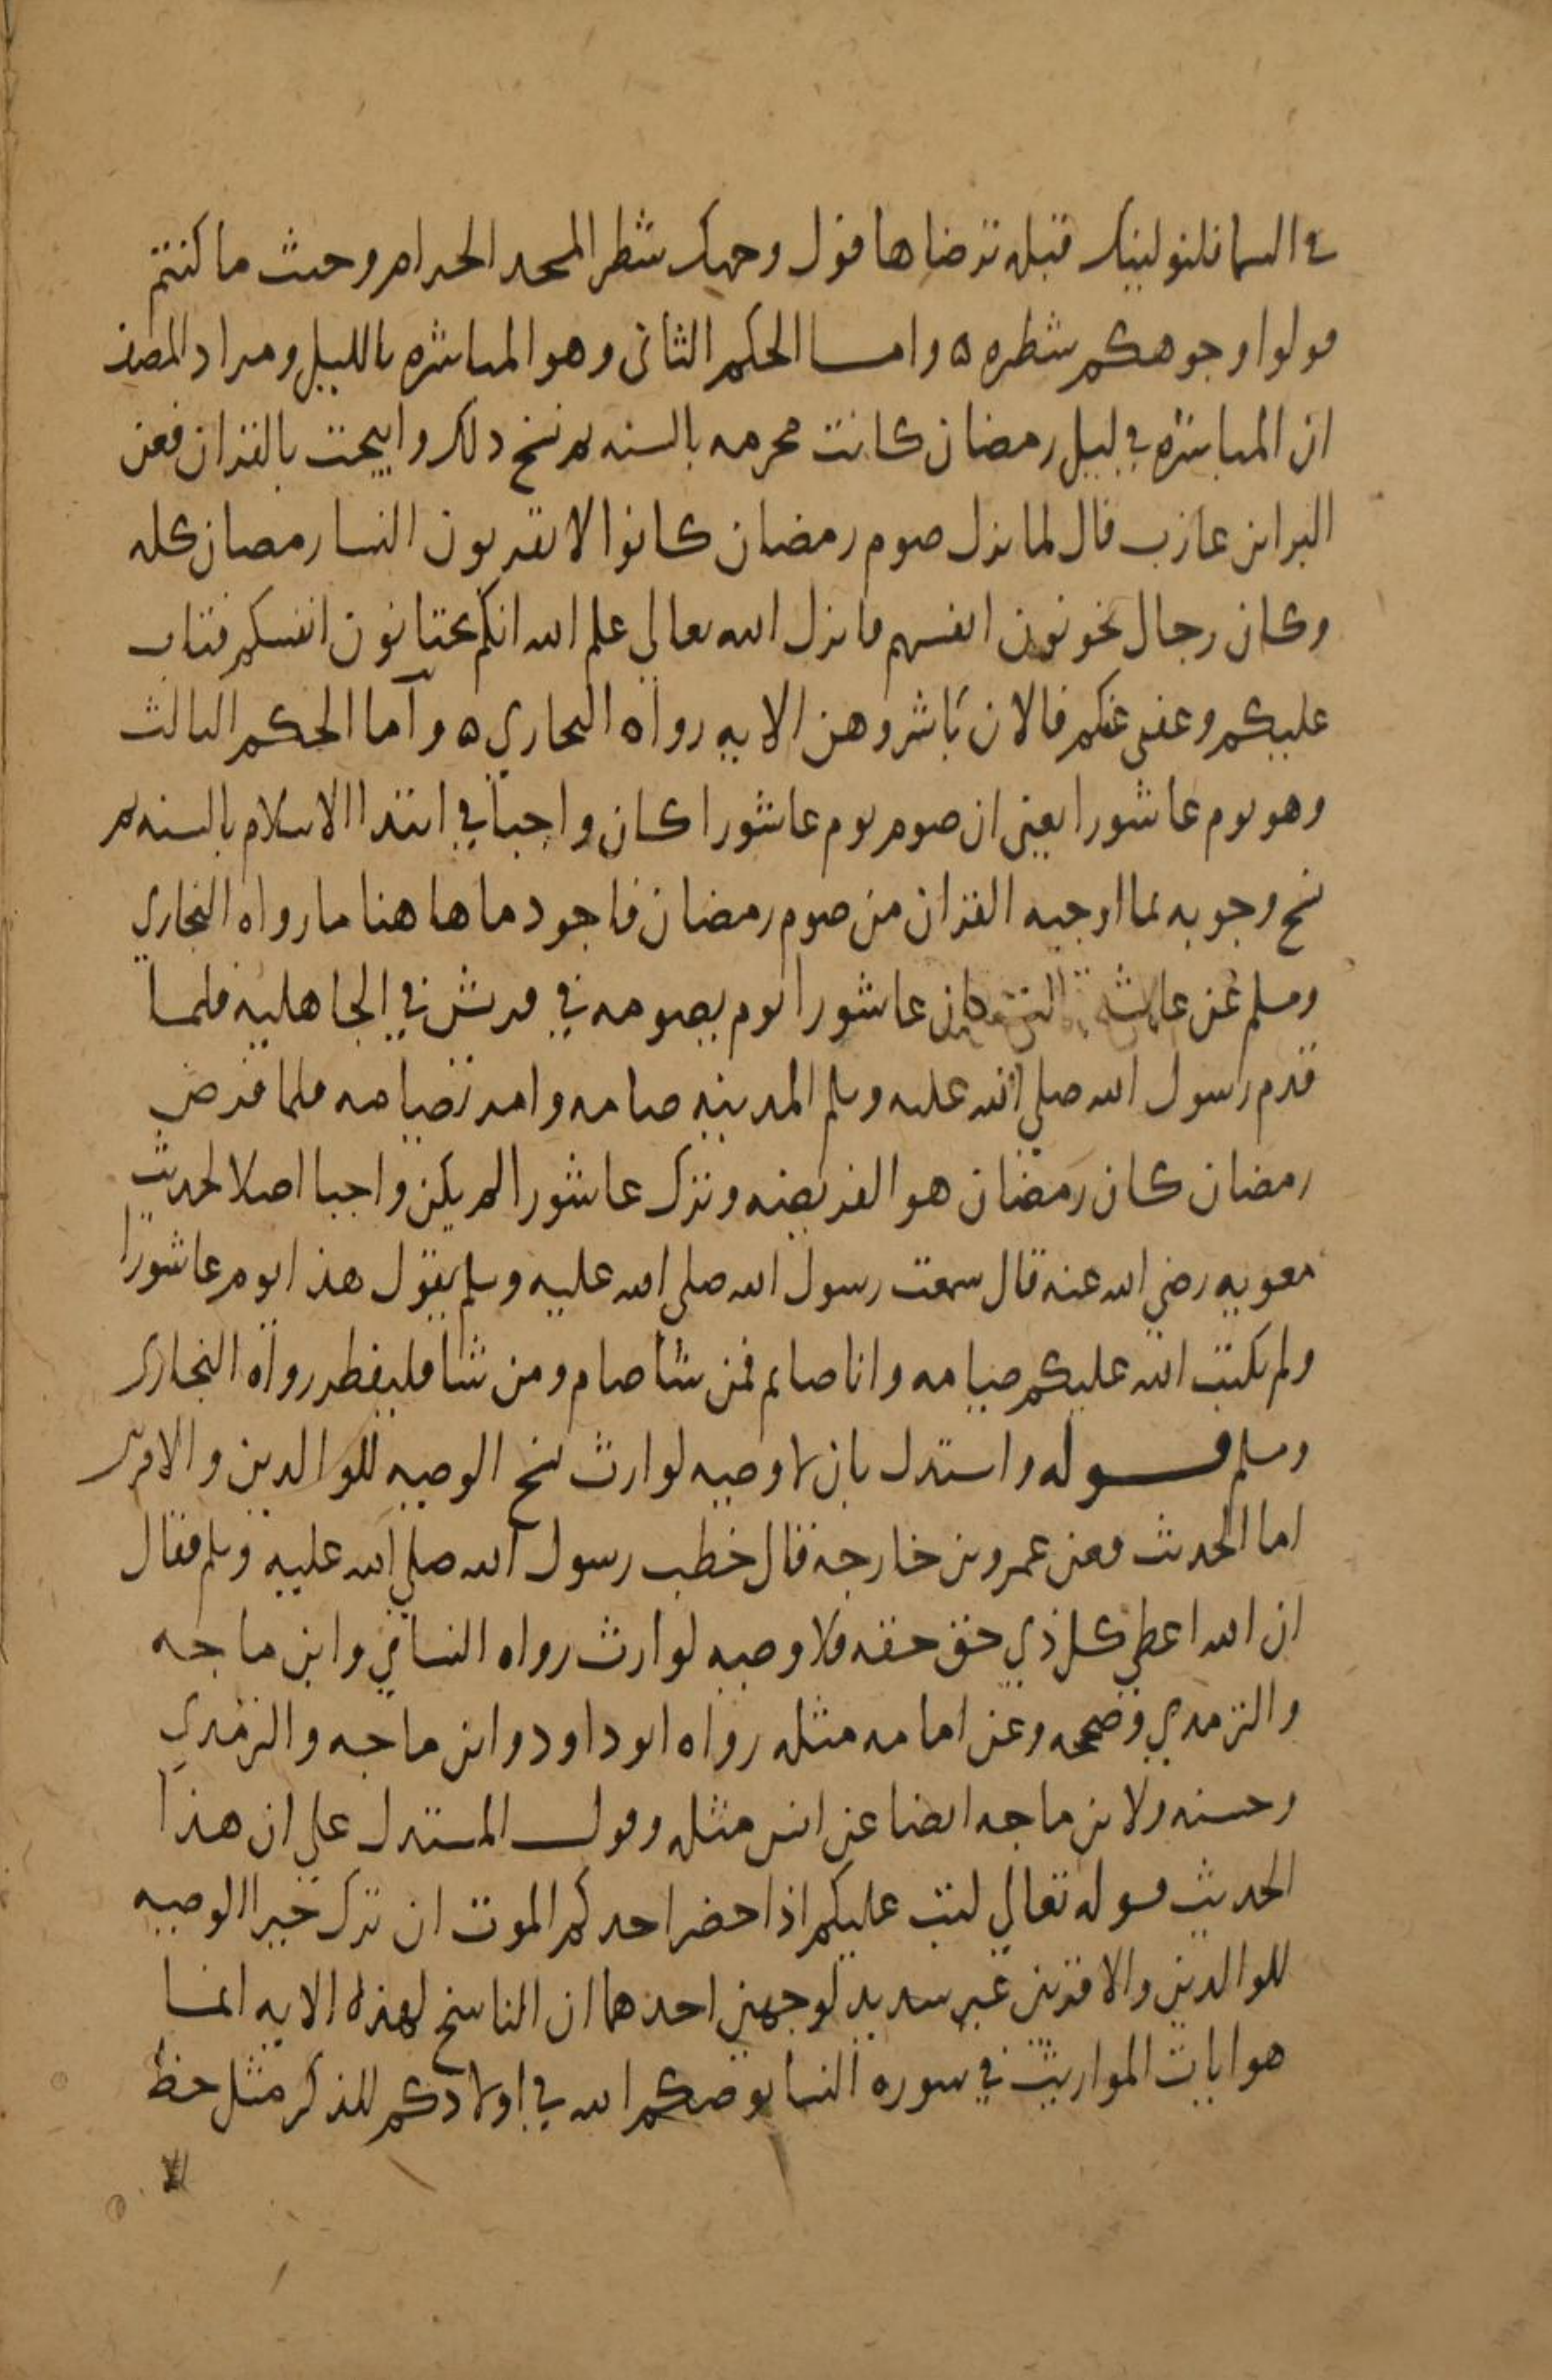 في السما فلنولينك قبله ترضاها فول وجهك شطر المسجد الحرام وحيث ما كنتم
فولوا وجوهكم شطره ه واما الحكم الثاني وهو المباشره بالليل ومراد المصنف
ان المباشره في ليل رمضان كانت محرمه بالسنه ثم نسخ ذلك وابيحت بالقران فعن
البرا بن عازب قال لما نزل صوم رمضان كانوا لا يقربون النسا رمضان كله
وكان رجال يخونون انفسهم فانزل الله تعالي علم الله انكم تختانون انفسكم فتاب
عليكم وعفى عنكم فالان باشروهن الايه رواه البخاري ه وأما الحكم الثالث
وهو يوم عاشورا يعني ان صوم يوم عاشورا كان واجبا في ابتدا الاسلام بالسنه ثم
نسخ وجوبه بما اوجبه القران من صوم رمضان فاجود ما هاهنا ما رواه البخاري
ومسلم عن عايشه كان عاشورا يوم يصومه في قريش في الجاهليه فلما
قدم رسول الله صلي الله عليه وسلم المدينه صامه وامر بصيامه فلما فرض
رمضان كان رمضان هو الفريضه وترك عاشورا لم يكن واجبا اصلا لحديث
معويه رضي الله عنه قال سمعت رسول الله صلي الله عليه وسلم يقول هذا يوم عاشورا
ولم يكتب الله عليكم صيامه وانا صايم فمن شا صام ومن شا فليفطر رواه البخاري
ومسلم قوله واستدل بان لا وصيه لوارث نسخ الوصيه للوالدين والاقربين
اما الحديث فعن عمرو بن خارجة قال خطب رسول الله صلي الله عليه وسلم فقال
ان الله اعطي كل ذي حق حقه فلا وصيه لوارث رواه النساي وابن ماجه
والترمدي وصححه وعن امامه مثله رواه ابو داود وابن ماجه والترمدي
وحسنه ولابن ماجه ايضا عن انس مثله وقول المستدل علي ان هذا
الحديث قوله تعالي كتب عليكم اذا حضر احدكم الموت ان ترك خيرا الوصيه
للوالدين والاقربين غير سديد لوجهين احدهما ان الناسخ لهذه الايه انما
هو ايات المواريث في سوره النسا يوصيكم الله في اولادكم للذكر مثل حظ